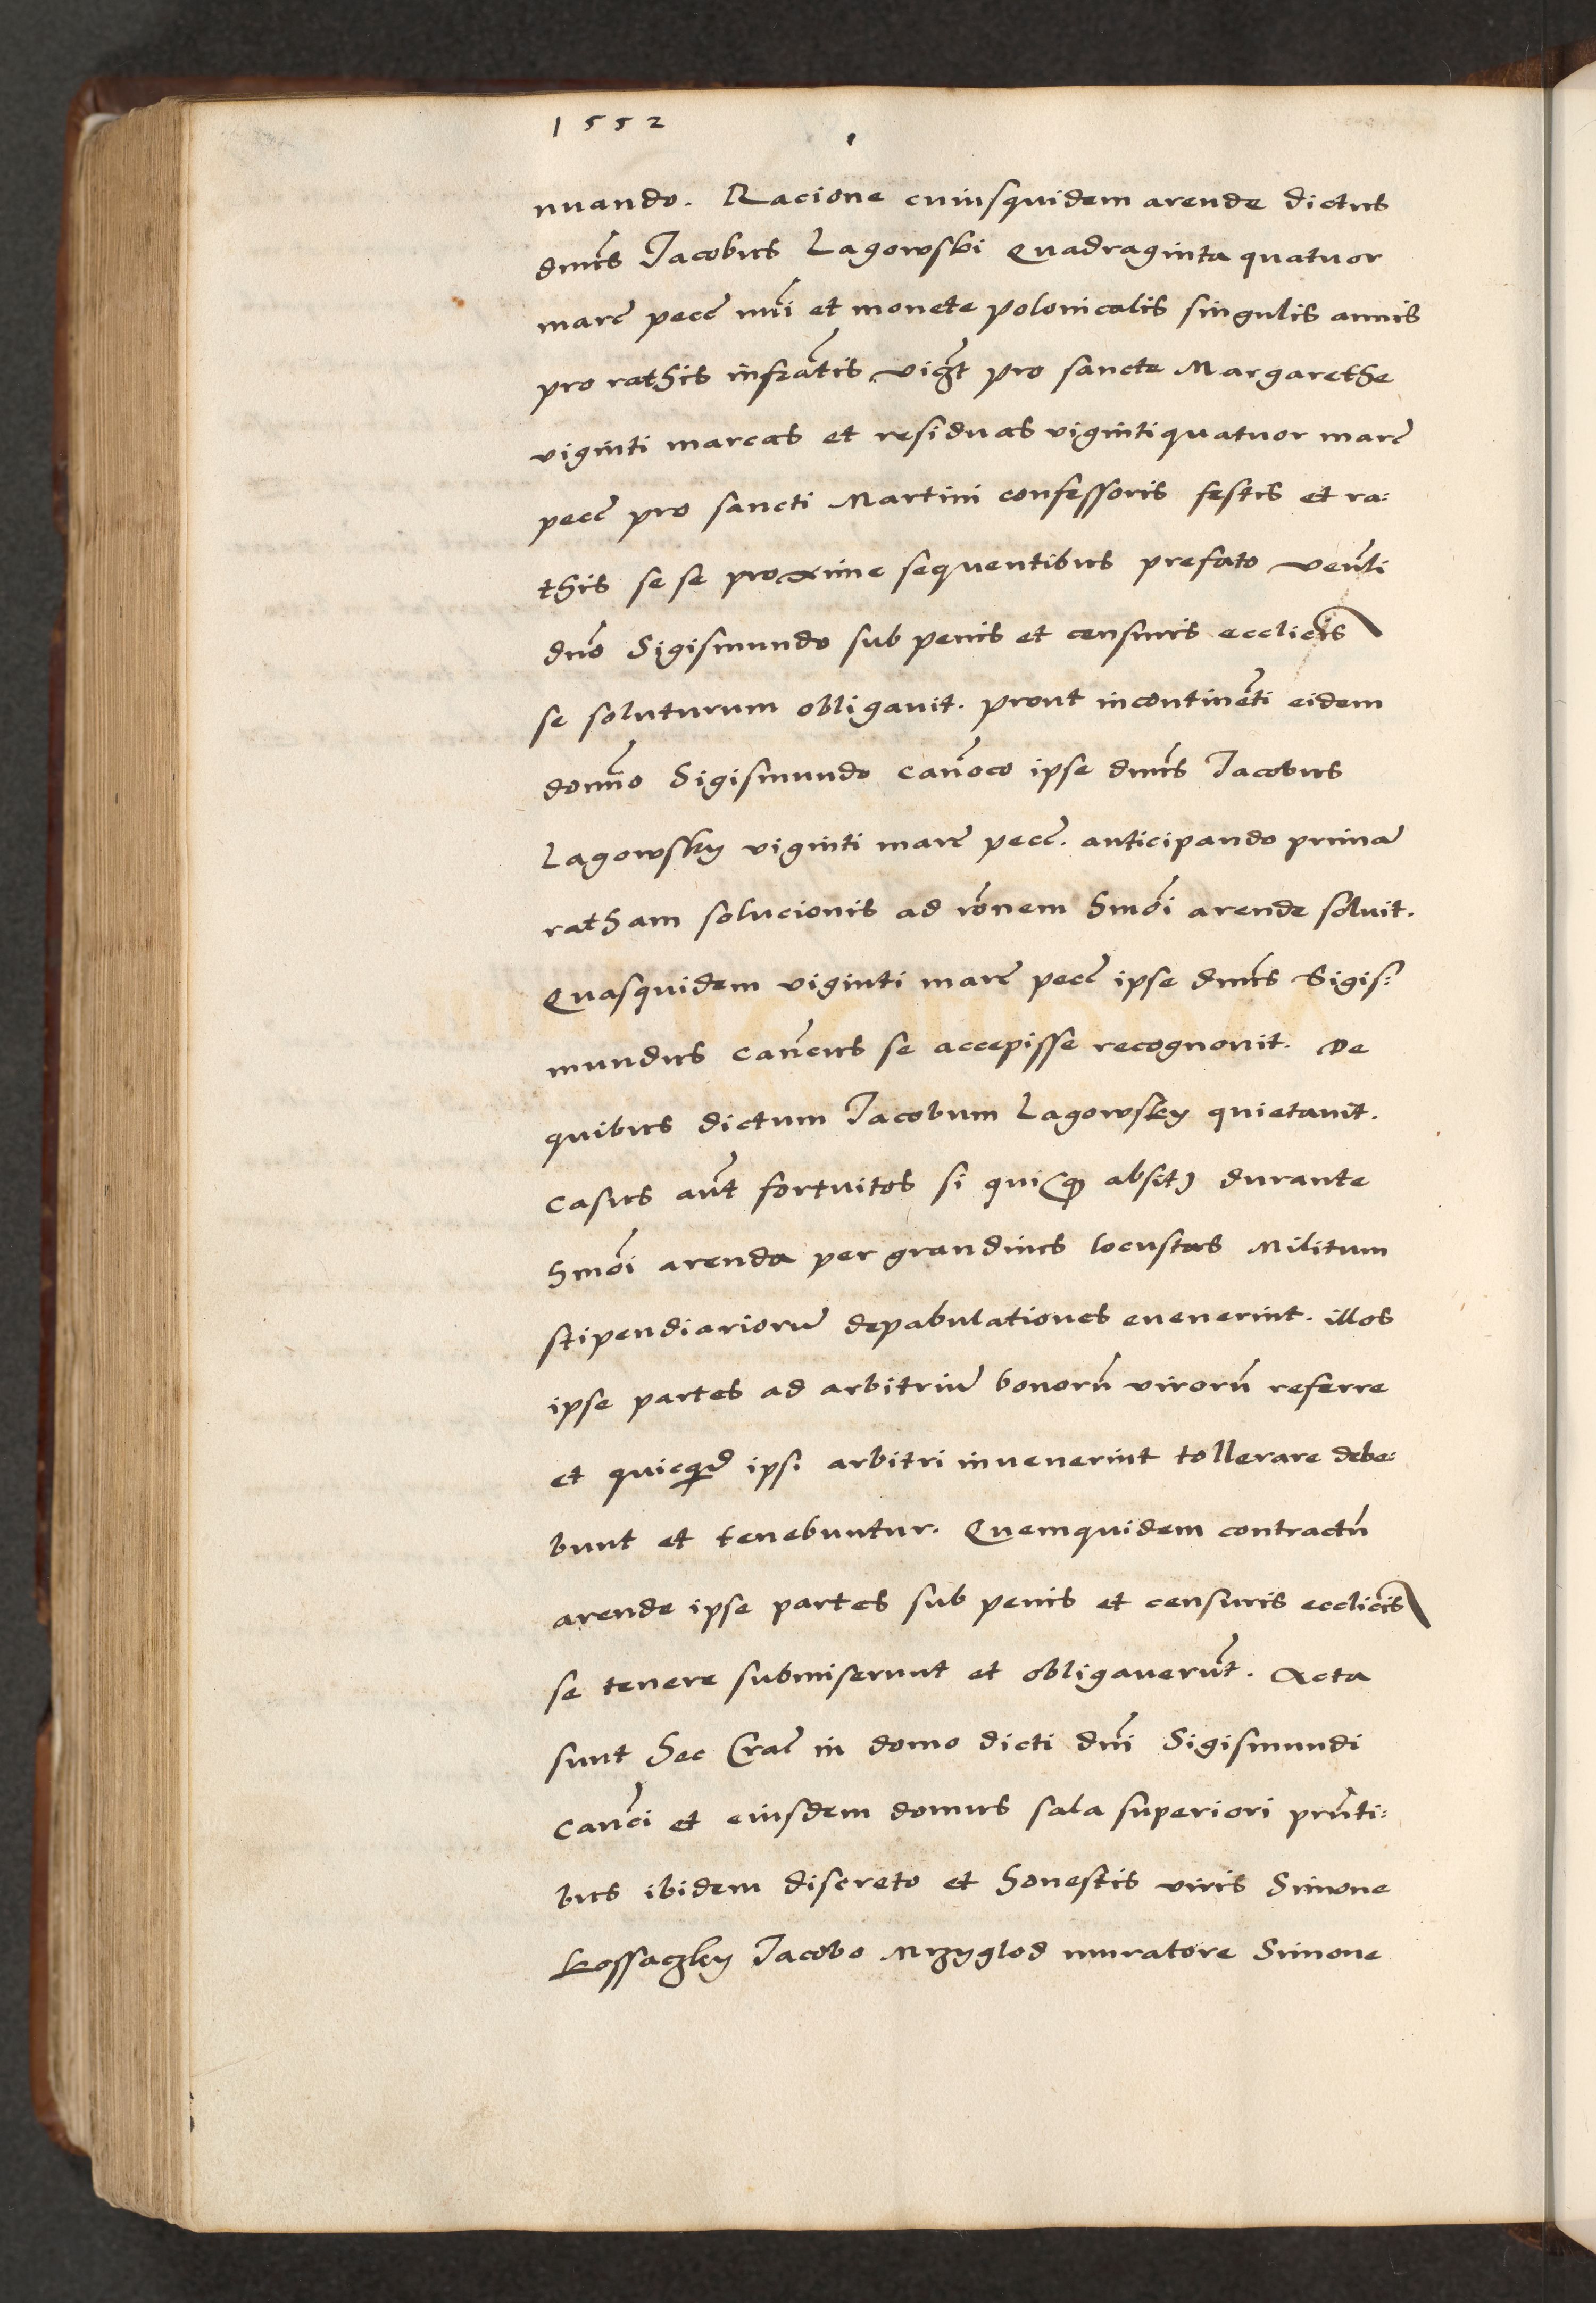 1552
nuando. Racione cuiusquidem arende dictus
dnus Jacobus Lagowski Quadraginta quatuor
marc pecc nui et monete polonicalis singulis annis
pro rathis infratis vigt pro sancte Margarethe
viginti marcas et residuas viginti quatuor marc
pecc pro sancti Martini confessoris festis et ra:
this se se proxime sequentibus prefato venli
dno Sigismundo sub penis et censuris ecclicis
se soluturum obligauit. prout incontineti eidem
domno Sigismundo canoco ipse dnus Jacobus
Lagowsky viginti marc pecc. anticipando prima
ratham solucionis ad ronem hmoi arende soluit.
Quasquidem viginti marc pecc ipse dnus Sigis:
mundus cancus se accepisse recognouit. De
quibus dictum Jacobum Lagowsky quietauit.
Casus aut fortuitos si qui (qd absit) durante
hmoi arenda per grandines locustas Militum
stipendiarioru depabulationes euenerint. illos
ipse partes ad arbitriu bonoru virorum referre
et quicqd ipsi arbitri inuenerint tollerare debe:
bunt et tenebuntur. Quemquidem contractu
arende ipse partes sub penis et censuris ecclicis
se tenere submiserunt et obligauerut. Acta
sunt hec Crac in domo dicti dni Sigismundi
canci et eiusdem domus sala superiori prnti:
bus ibidem discreto et honestis viris Simone
Kossaczky Jacobo Mrzyglod muratore Simone